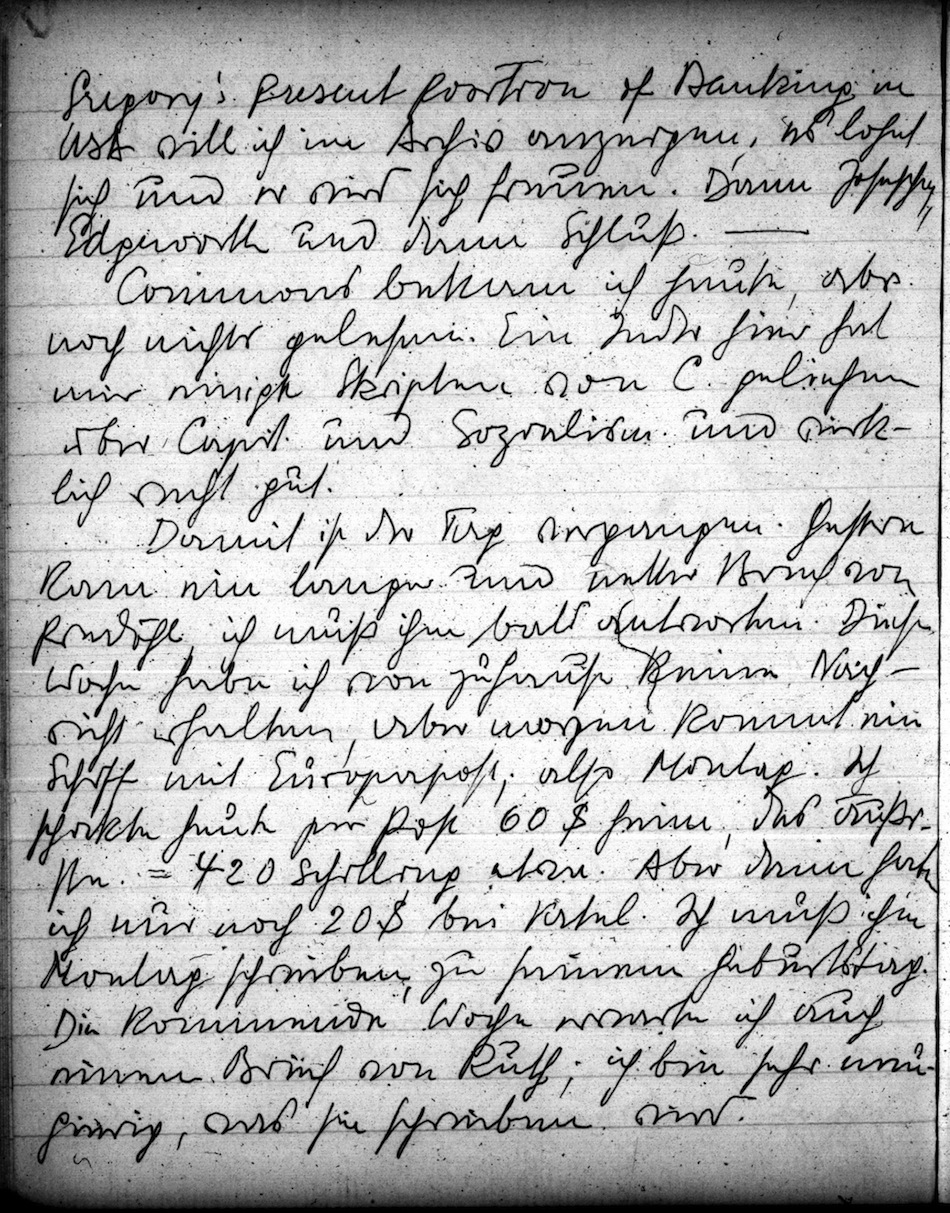 Gregory's Present Position of Banking in
USA will ich im Archiv anzeigen, es lohnt
sich und er wird sich freuen. Dann
Edgeworth und dann Schluß. —
Commons bekam ich heute, aber
noch nichts gelesen. Ein Inder hier hat
mir einige Skripten von C. geliehen
über Capit. und Sozialism. und wirk-
lich recht gut.
Damit ist der Tag vergangen. Gestern
kam ein langer und netter Brief von
Predöhl, ich muß ihm bald antworten. Diese
Woche habe ich von zuhause keine Nach-
richt erhalten, aber morgen kommt ein
Schiff mit Europapost, also Montag. Ich
schickte heute per Post 60 $ heim, das äußer-
ste. = 420 Schilling etwa. Aber dann habe
ich nur noch 20 $ bei Vatel. Ich muß ihm
Montag schreiben, zu seinem Geburtstag.
Die kommende Woche erwarte ich auch
einen Brief von Ruth; ich bin sehr neu-
gierig, was sie schreiben wird.